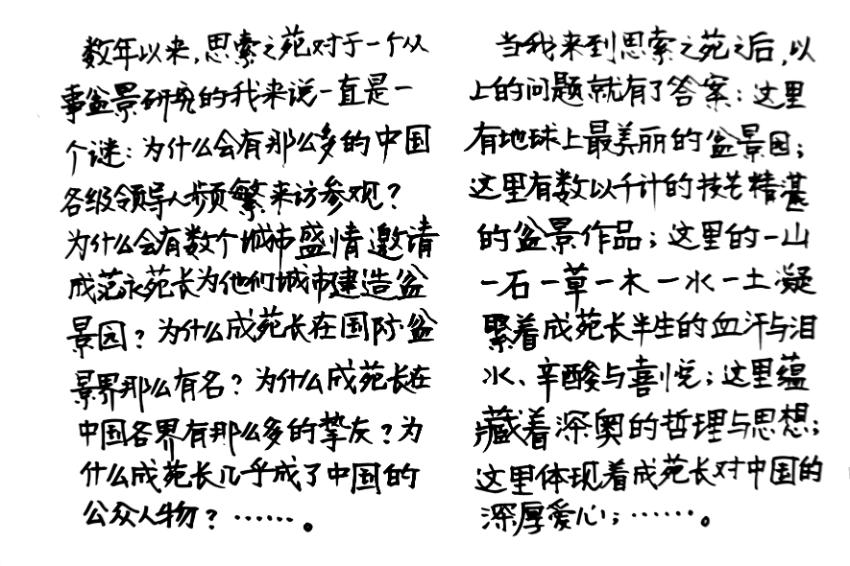 数年以来，思索之苑对于一个从
事盆景研究的我来说一直是一
个谜：为什么会有那么多的中国
各级领导人频繁来访参观？
为什么会有数个城市盛情邀请
成范永苑长为他们城市建造盆
景园？为什么成苑长在国际盆
景界那么有名？为什么成苑长在
中国各界有那么多的挚友？为
什么成苑长几乎成了中国的
公众人物？……。
当我来到思索之苑之后，以
上的问题就有了答案：这里
有地球上最美丽的盆景园；
这里有数以千计的技艺精湛
的盆景作品；这里的一山
一石一草一木一水一土凝
聚着成苑长半生的血汗与泪
水、辛酸与喜悦；这里蕴
藏着深奥的哲理与思想；
这里体现着成苑长对中国的
深厚爱心；……。